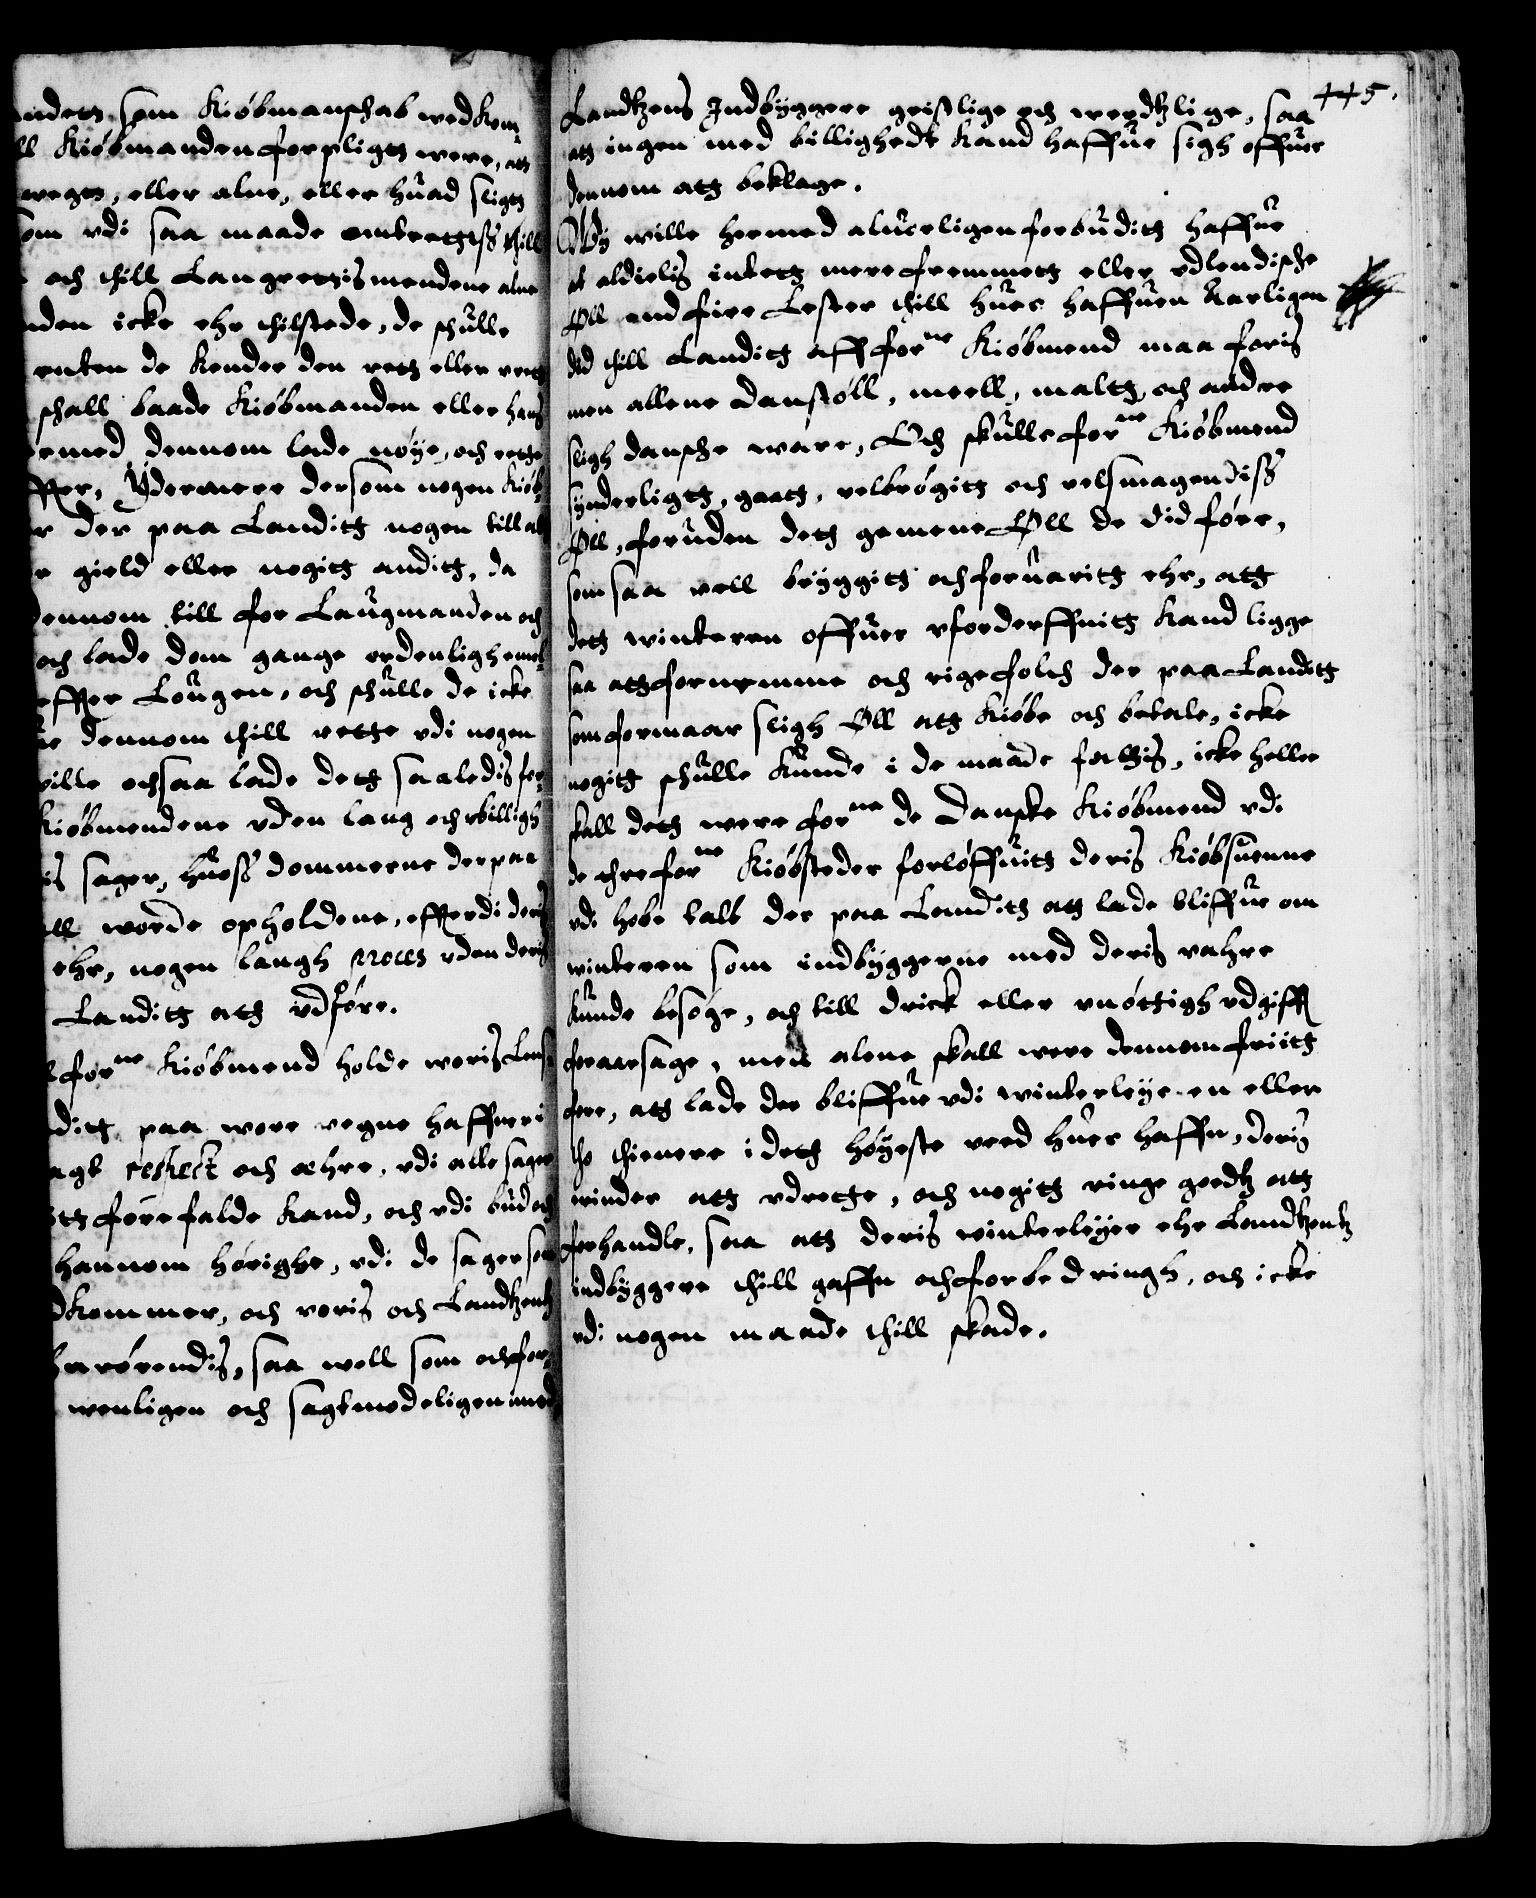 andets som Kiøbmanschab wedkom¬
ll Kiøbmanden forpligts were, att
wegts, eller alne, eller huad sligts
om vdi saa maade ombragtiss thill
och thill Langrettismendene alne
nden icke ehr thilstede, de schulle
enten de kender den rets eller vrets
schall baade Kiøbmanden eller hans
emed dennom lade nøye, och rette
ffter, Ydermere dersom nogen Kiøb¬
r der paa Landits nogen till al
e gield eller nogits andits, da
dennom till for Laugmanden och
och lade dom gange ordenligh
effter Lougen, och schulle de icke
ue dennom thill rette vdi nogen
wille ochsaa lade dets saaledis for¬
Kiøbmendene vden lang och vbilligh
is sager, huess dommerne der paa
ll worde opholdene, efftterdi deris
ehr, nogen langh Proces vden deris
Landits ats vdføre.
forne Kiøbmend holde woris Lens¬
dits paa wore vegne haffuer i
agt respect och æhre, vdi alle sager
ts forefalde kand, och vdi bud och
hannom hørighe, vdi de sager som
dkommer, och voris och Landtzents
anrørendis, saa well som och for¬
wenligen och sagtmodeligen med
445.
Landtzens Indbyggere geistlige och werdtzlige, saa
ats ingen med billighedt kand haffue sigh offuer
dennom ats beklage.
Wy wille hermed aluorligen forbudits haffue
at aldielis intets mere fremmets eller vdlendische
Øll end fire Lester thill huer haffuen Aarligen
did thill Landits aff forne Kiøbmend maa føris
men allene danstøll, meell, malts, och andre
sligh dansche ware, Och skulle forne Kiøbmend
synderligts, gaats, velbrøgits och velsmagendiss
Øll, foruden dets gemene Øll de did føre,
som saa vell bryggits och foruarits ehr, att
dets winteren offuer vforderffuits kand ligge
saa ats fornemme och rige folch der paa Landits
som formaar sligh Øll ats kiøbe och betale, icke
nogits schulle kunde i de maade fattis, icke heller
skall dets were forne de Danske Kiøbmend vdi
de thre forne Kiøbsteder forløffuits deris Kiøbsuenne
vdi hobe tall der paa Landits ats lade bliffue om
winteren som indbyggerne med deris vahre
kunde besøge, och till drick eller vnøttigh vdgifft
foraarsage, men alene skall were dennom friits
fore, ats lade der bliffue vdi winterleye en eller
tho thienere i dets høyeste ved huer haffn, deris
ærinder ats vdrette, och nogits ringe godtz ats
forhandle, saa ats deris winterleyer ehr Landtzents
indbyggere thill gaffn och forbedringh, och icke
vdi nogen maade thill skade.